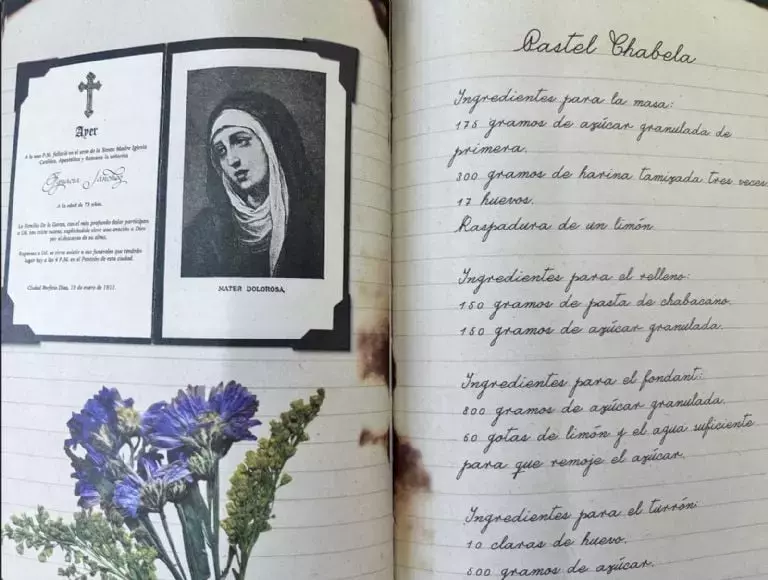 Ayer
A la una P.M. falleció en el seno de la Santa Madre Iglesia
Católica, Apostólica y Romana la señorita
Sánchez
A la edad de 75 años.
La Familia De la Garza, con el más profundo dolor participan
a Ud. tan triste nueva, suplicándole eleve una oración a Dios
por el descanso de su alma.
Rogamos a Ud. se sirva asistir a sus funerales que tendrán
lugar hoy a las 4 P.M. en el Panteón de esta ciudad.
Ciudad Porfirio Díaz, de enero de
MATER DOLOROSA.
Pastel Chabela
Ingredientes para la masa:
175 gramos de azúcar granulada de
primera.
300 gramos de harina tamizada tres veces.
17 huevos.
Raspadura de un limón.
Ingredientes para el relleno:
150 gramos de pasta de chabacano.
150 gramos de azúcar granulada.
Ingredientes para el fondant:
800 gramos de azúcar granulada.
60 gotas de limón y el agua suficiente
para que remoje el azúcar.
Ingredientes para el turrón:
10 claras de huevo.
500 gramos de azúcar.